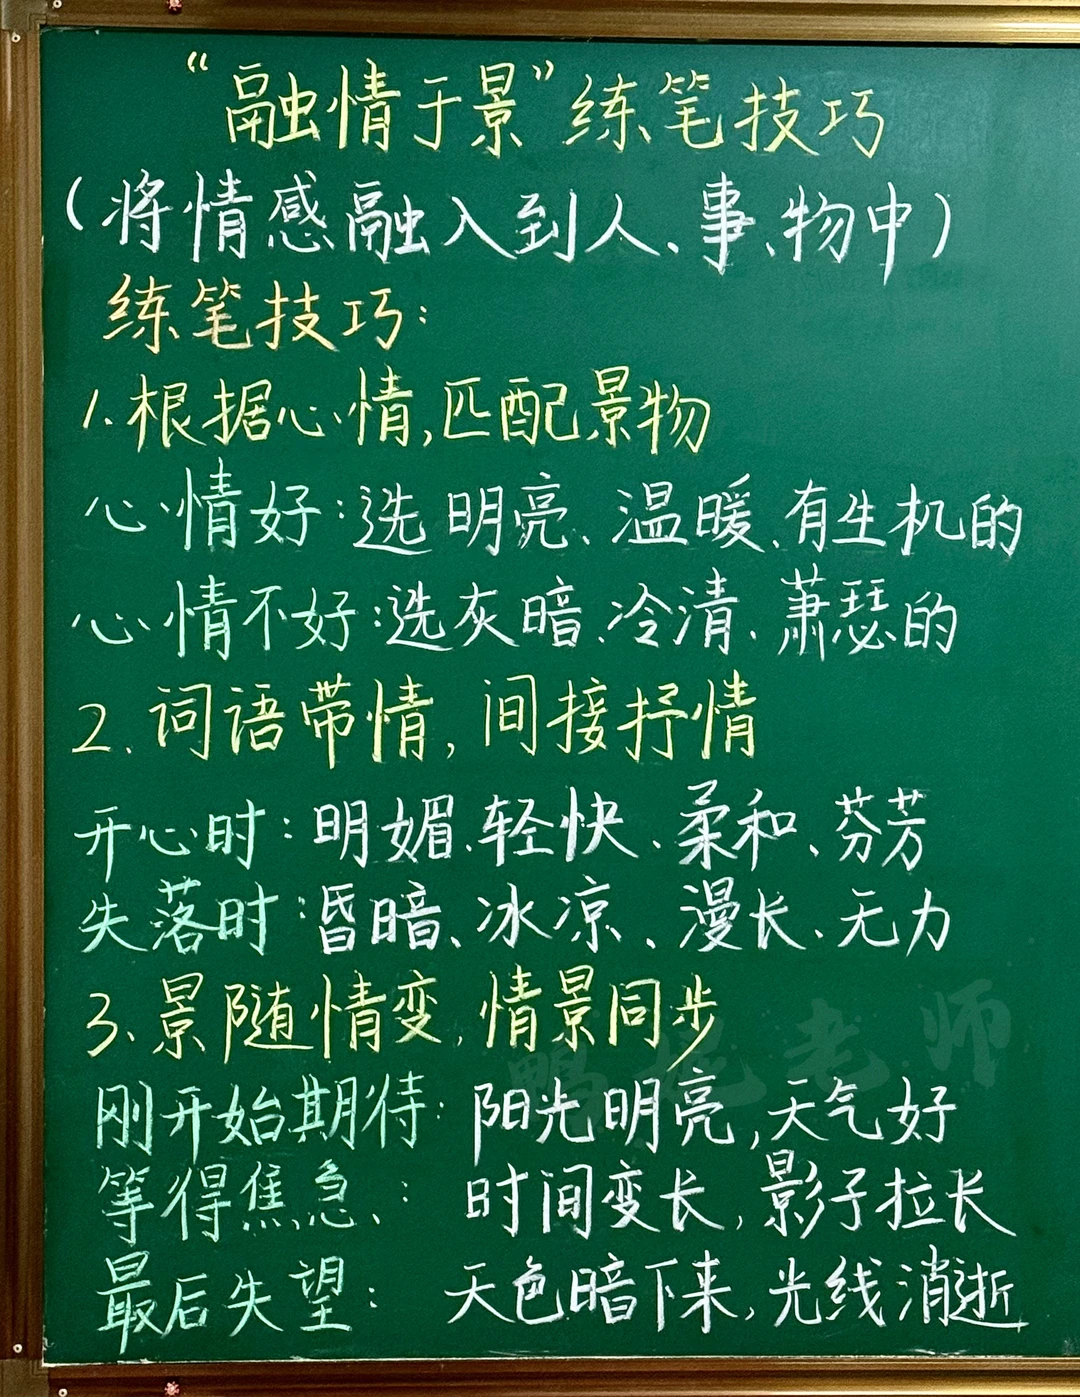 “融情于景”练笔技巧
(将情感融入到人、事、物中)
练笔技巧:
1.根据心情,匹配景物
心情好:选明亮、温暖、有生机的
心情不好:选灰暗、冷清、萧瑟的
2.词语带情,间接抒情
开心时:明媚、轻快、柔和、芬芳
失落时:昏暗、冰凉、漫长、无力
3、景随情变,情景同步
刚开始期待:阳光明亮,天气好
等得焦急、: 时间变长,影子拉长
最后失望: 天色暗下来,光线消逝
老师